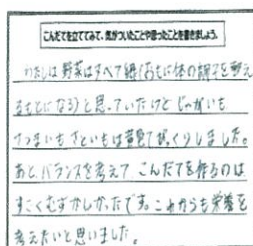 こんだてを立ててみて、気がついたことや思ったことを書きましょう。
わたしは野菜はすべて緑(おもに体の調子を整え
るもとになる)と思っていたけどじゃがいも
さつまいもさといもは黄色でびっくりしました。
あと、バランスを考えて、こんだてを作るのは
すごくむずかしかったです。これからも栄養を
考えたいと思いました。